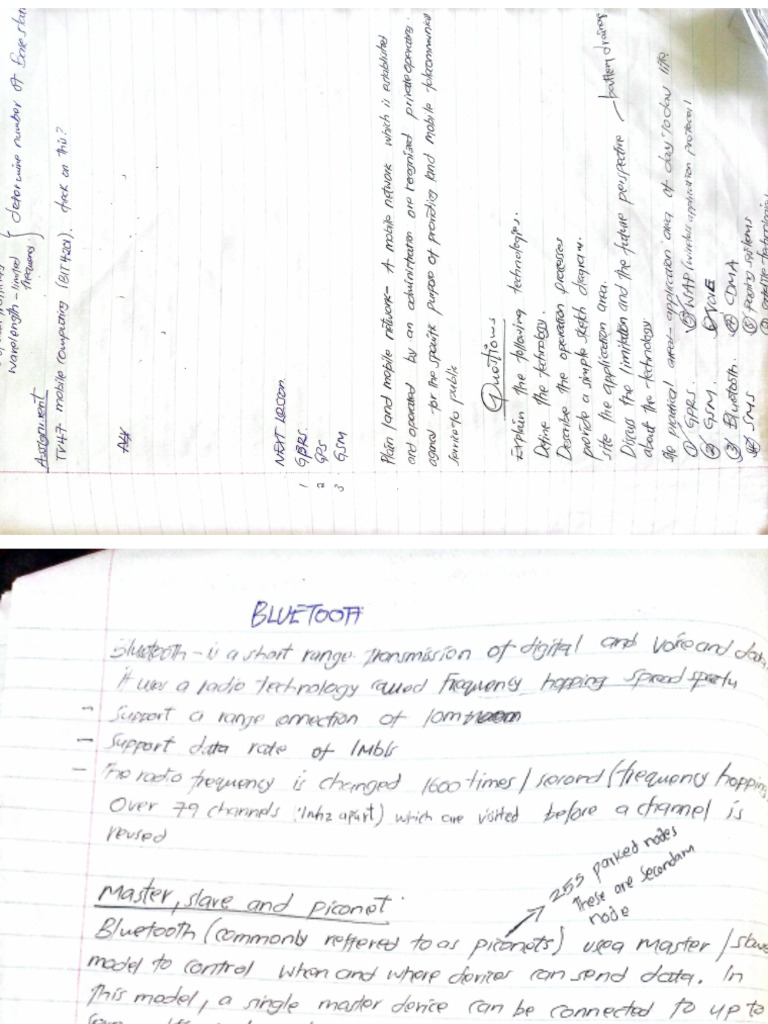 wavelength - limited } determine number of base stat
frequency
Assignment
TV47 mobile computing (BIT4201). check on this?
NEXT Lesson
1 GPRS.
2 GPS
3 GSM
Plain land mobile network - A mobile network which is established
and operated by an administration or recognized private operating
agence for the specific purpose of providing land mobile telecommunical
service to public
Questions
Explain the following technologies.
Define the technology.
Describe the operation processes
provide a simple sketch diagram.
site the application area.
Discuss the limitation and the future perspective — battery drainag
about the technology.
the practical area - application area of day to day life
① GPRS. ⑤ WAP (wireless application protocol)
② GSM.
③ Bluetooth. CDMA
SMS ⑥ paging systems
BLUETOOTH
Bluetooth - is a short range transmission of digital and voice and data,
it uses a radio technology called frequency hopping spread spectu
- Support a range connection of 10m
- Support data rate of 1Mb/s
- The radio frequency is changed 1600 times/second (frequency hopping
Over 79 channels (1mhz apart) which are visited before a channel is
reused
255 parked nodes
These are secondary
node
Master, slave and piconet.
Bluetooth (commonly reffered to as piconets) use a master/slave
model to control when and where devices can send data. In
this model, a single master device can be connected to up to